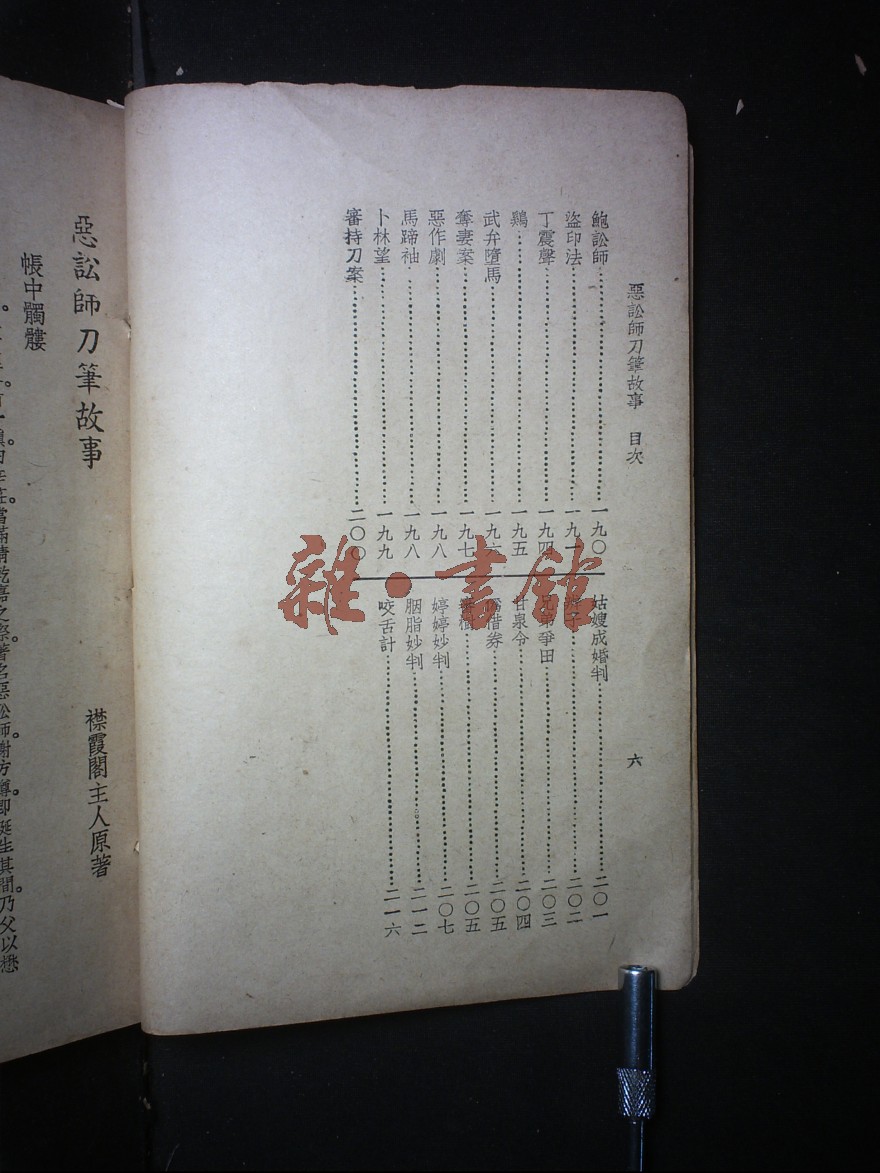 惡訟師刀筆故事 目次 六
鮑訟師 一九〇
盜印法 一九一
丁震聲 一九四
鷄 一九五
武弁墮馬 一九六
奪妻案 一九七
惡作劇 一九八
馬蹄袖 一九八
卜林望 一九九
審持刀案 二〇〇
姑嫂成婚判 二〇一
二〇二
兄弟爭田 二〇三
甘泉令 二〇四
借券 二〇五
樹 二〇五
婷婷妙判 二〇七
胭脂妙判 二一二
咬舌計 二一六
雜·書館
惡訟師刀筆故事
襟霞閣主人原著
帳中髑髏
當滿清乾嘉之際。著名惡訟師謝方樽。即誕生其間。乃父以懋